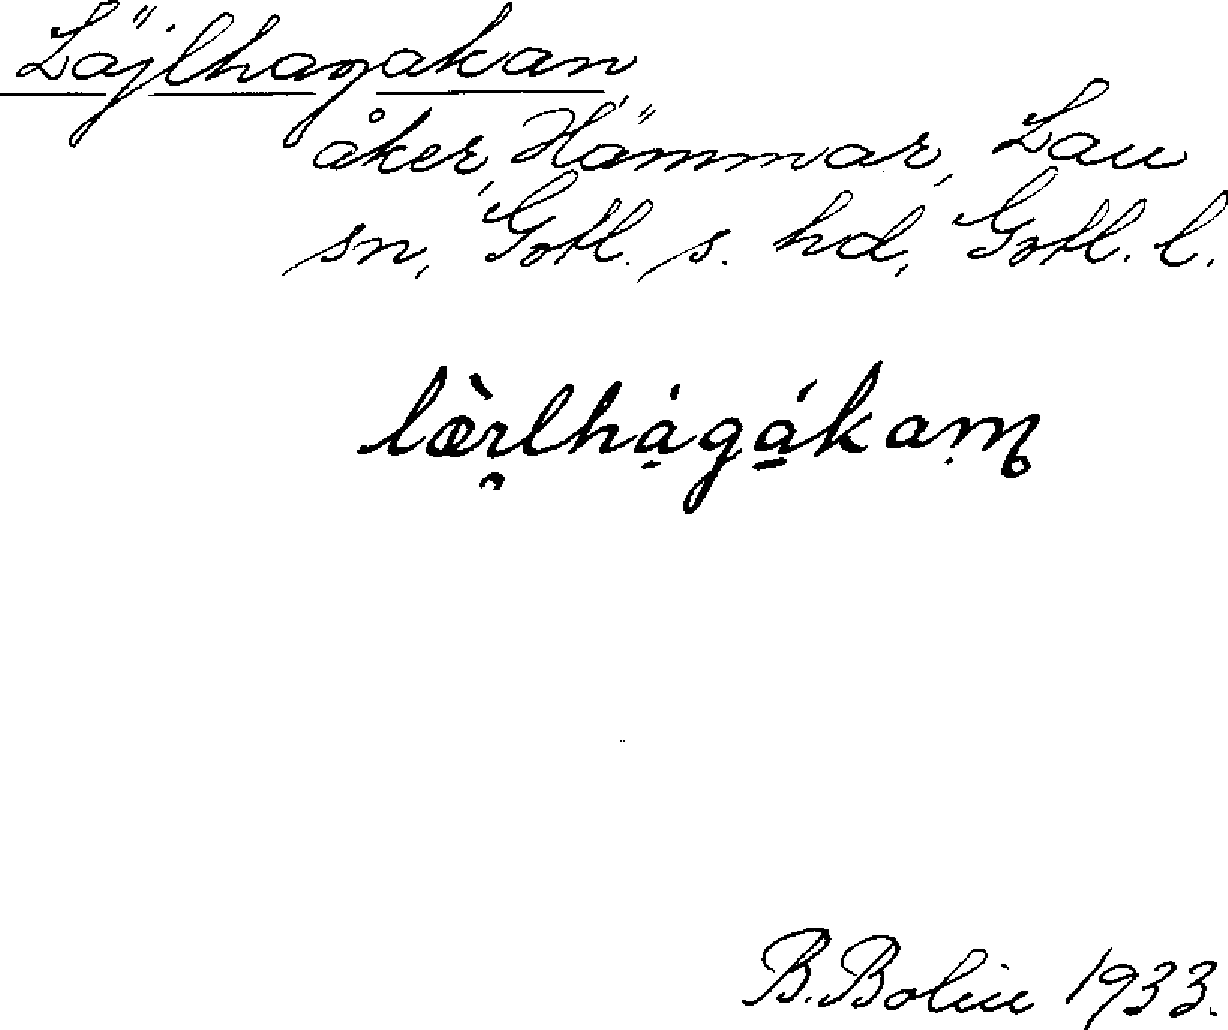 Läjlhagakan
åker, Hämmar, Lau
sn, Gotl. s. hd, Gotl. l.
B. Bolin 1933.